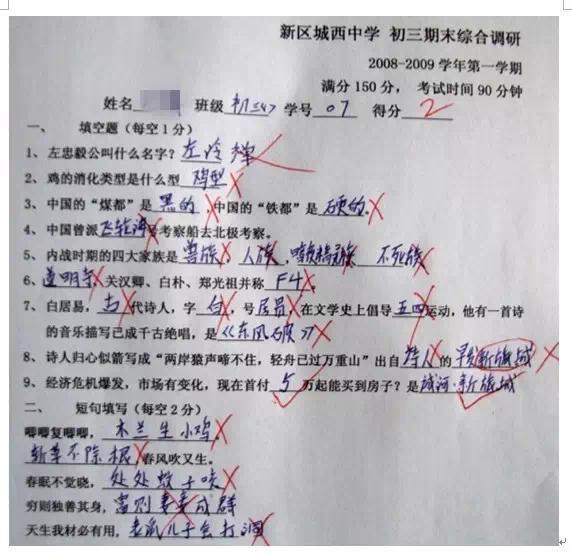 新区城西中学 初三期末综合调研
2008-2009 学年第一学期
满分 150 分， 考试时间 90 分钟
姓名 班级 初三47 学号 07 得分 2
一、 填空题（每空 1 分）
1、左忠毅公叫什么名字？左冷禅
2、鸡的消化类型是什么型 鸡型
3、中国的“煤都”是 黑的，中国的“铁都”是 硬的。
4、中国曾派飞轮海号考察船去北极考察。
5、内战时期的四大家族是 兽族、人族、暗夜精灵族 不死族
6、道明寺、关汉卿、白朴、郑光祖并称 F4。
7、白居易，古代诗人，字 白，号居易，在文学史上倡导五四运动，他有一首诗
的音乐描写已成千古绝唱，是《东风破》
8、诗人归心似箭写成“两岸猿声啼不住，轻舟已过万重山”出自 诗人 的 新旅城
9、经济危机爆发，市场有变化，现在首付 5 万起能买到房子？是域河·新旅城
二、 短句填写（每空 2 分）
唧唧复唧唧，木兰生小鸡。
斩草不除根，春风吹又生。
春眠不觉晓，处处蚊子咬
穷则独善其身，富则妻妾成群
天生我材必有用，老鼠儿子会打洞